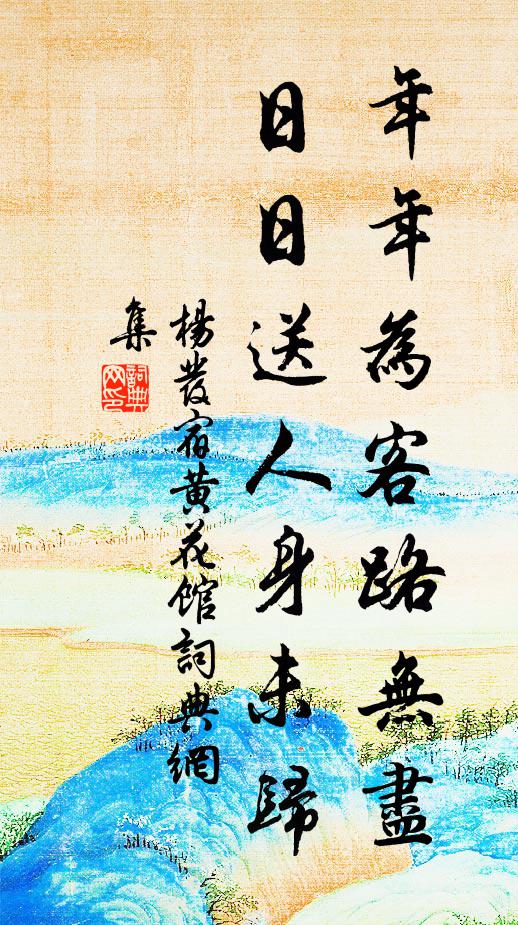 年年為客路無盡
日日送人身未歸
楊發宿黃花館詞典網
集
詞典
网印